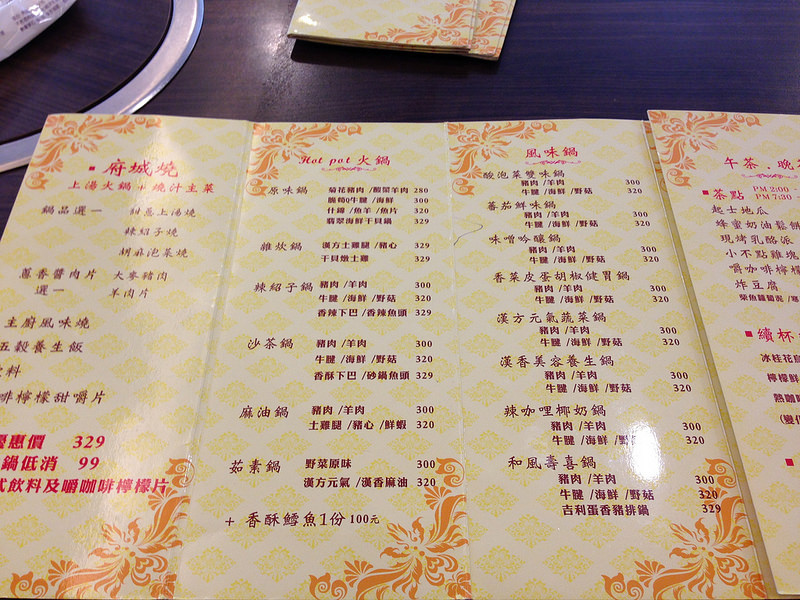 ▪府城燒
上湯火鍋+燒汁主菜
鍋品選一 甜蔥上湯燒
辣紹子燒
胡麻泡菜燒
蔥香醬肉片 大麥豬肉
選一 羊肉片
主廚風味燒
五穀養生飯
飲料
啡檸檬甜嚼片
優惠價 329
鍋低消 99
式飲料及嚼咖啡檸檬片
Hot pot 火鍋
原味鍋 菊花豬肉/酸菜羊肉 280
牛腱/海鮮 300
什錦/魚羊/魚片 320
翡翠海鮮干貝鍋 329
雜炊鍋 漢方土雞腿/豬心 329
干貝燉土雞 329
辣紹子鍋 豬肉/羊肉 300
牛腱/海鮮/野菇 320
香辣下巴/香辣魚頭 329
沙茶鍋 豬肉/羊肉 300
牛腱/海鮮/野菇 320
香酥下巴/砂鍋魚頭 329
麻油鍋 豬肉/羊肉 300
土雞腿/豬心/鮮蝦 320
茹素鍋 野菜原味 300
漢方元氣/漢香麻油 320
+ 香酥鱈魚1份 100元
風味鍋
酸泡菜雙味鍋
豬肉/羊肉 300
牛腱/海鮮/野菇 320
蕃茄鮮味鍋
豬肉/羊肉 300
牛腱/海鮮/野菇 320
味噌吟釀鍋
豬肉/羊肉 300
牛腱/海鮮/野菇 320
香菜皮蛋胡椒健胃鍋
豬肉/羊肉 300
牛腱/海鮮/野菇 320
漢方元氣蔬菜鍋
豬肉/羊肉 300
牛腱/海鮮/野菇 320
漢香美容養生鍋
豬肉/羊肉 300
牛腱/海鮮/野菇 320
辣咖哩椰奶鍋
豬肉/羊肉 300
牛腱/海鮮/野 320
和風壽喜鍋
豬肉/羊肉 300
牛腱/海鮮/野菇 320
吉利蛋香豬排鍋 329
午茶．晚
▪茶點 PM 2:00 -
PM 7:30 -
起士地瓜
蜂蜜奶油鬆餅
現烤乳酪派
小不點雞塊
嚼咖啡檸檬
炸豆腐
▪續杯
冰桂花
檸檬鮮
熱咖